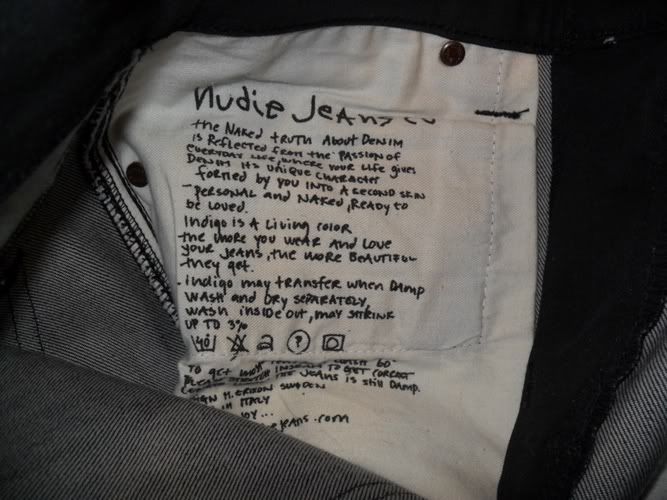 nudie Jeans co
the NAKED tRUTH ABOUT DENIM
is REFLECTED from the PASSION OF
EVERYDAY LIFE, WHERE YOUR LIFE gives
DENIM ITS UNIQUE CHARACTER
formed by YOU INTO A SECOND SKIN
- PERSONAL AND NAKED, READY to
be LOVED.
Indigo is A Living color
the more you WEAR AND LOVE
YOUR JEANS, the MORE BEAUTIFUL
they get.
. indigo may transfer when DAMP
WASH and DRY SEPARATELY,
WASH inside out, may SHRINK
UP TO 3%
40 ?
60°
TO get
INSEAM TO GET CORRECT
THE JEANS is still DAMP.
SWEDEN
IN ITALY
JOY...
eJeans.com